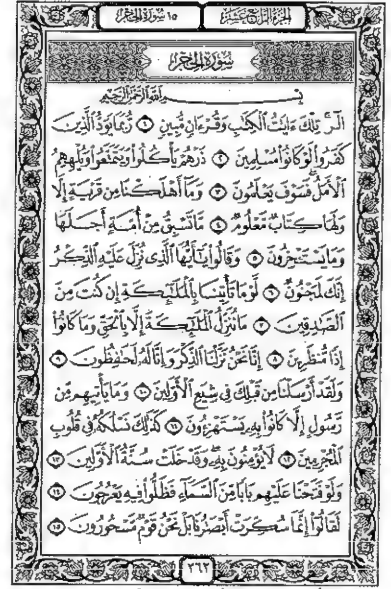 الجزء الرابع عشر ١٥ سورة الحجر
سورة الحجر
بسم الله الرحمن الرحيم
الٓرۚ تِلْكَ ءَايَٰتُ ٱلْكِتَٰبِ وَقُرْءَانٍ مُّبِينٍ ۝١ رُّبَمَا يَوَدُّ ٱلَّذِينَ
كَفَرُوا۟ لَوْ كَانُوا۟ مُسْلِمِينَ ۝٢ ذَرْهُمْ يَأْكُلُوا۟ وَيَتَمَتَّعُوا۟ وَيُلْهِهِمُ
ٱلْأَمَلُۖ فَسَوْفَ يَعْلَمُونَ ۝٣ وَمَآ أَهْلَكْنَا مِن قَرْيَةٍ إِلَّا
وَلَهَا كِتَابٌ مَّعْلُومٌ ۝٤ مَّا تَسْبِقُ مِنْ أُمَّةٍ أَجَلَهَا
وَمَا يَسْتَـْٔخِرُونَ ۝٥ وَقَالُوا۟ يَٰٓأَيُّهَا ٱلَّذِى نُزِّلَ عَلَيْهِ ٱلذِّكْرُ
إِنَّكَ لَمَجْنُونٌ ۝٦ لَّوْ مَا تَأْتِينَا بِٱلْمَلَٰٓئِكَةِ إِن كُنتَ مِنَ
ٱلصَّٰدِقِينَ ۝٧ مَا نُنَزِّلُ ٱلْمَلَٰٓئِكَةَ إِلَّا بِٱلْحَقِّ وَمَا كَانُوٓا۟
إِذًا مُّنظَرِينَ ۝٨ إِنَّا نَحْنُ نَزَّلْنَا ٱلذِّكْرَ وَإِنَّا لَهُۥ لَحَٰفِظُونَ ۝٩
وَلَقَدْ أَرْسَلْنَا مِن قَبْلِكَ فِى شِيَعِ ٱلْأَوَّلِينَ ۝١٠ وَمَا يَأْتِيهِم مِّن
رَّسُولٍ إِلَّا كَانُوا۟ بِهِۦ يَسْتَهْزِءُونَ ۝١١ كَذَٰلِكَ نَسْلُكُهُۥ فِى قُلُوبِ
ٱلْمُجْرِمِينَ ۝١٢ لَا يُؤْمِنُونَ بِهِۦۖ وَقَدْ خَلَتْ سُنَّةُ ٱلْأَوَّلِينَ ۝١٣
وَلَوْ فَتَحْنَا عَلَيْهِم بَابًا مِّنَ ٱلسَّمَآءِ فَظَلُّوا۟ فِيهِ يَعْرُجُونَ ۝١٤
لَقَالُوٓا۟ إِنَّمَا سُكِّرَتْ أَبْصَٰرُنَا بَلْ نَحْنُ قَوْمٌ مَّسْحُورُونَ ۝١٥
٣٦٢